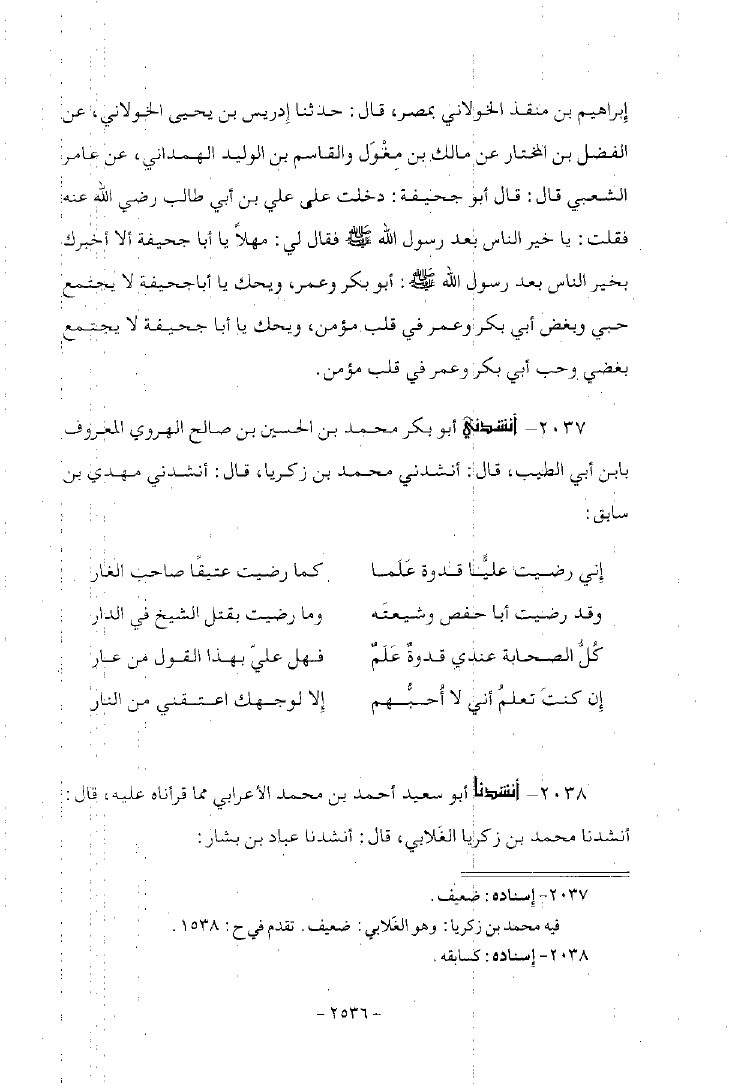 إبراهيم بن منقذ الخولاني بمصر، قال: حدثنا إدريس بن يحيى الخولاني، عن
الفضل بن المختار عن مالك بن مغْوَل والقاسم بن الوليد الهمداني، عن عامر
الشعبي قال: قال أبو جحيفة: دخلت على علي بن أبي طالب رضي الله عنه
فقلت: يا خير الناس بعد رسول الله ﷺ فقال لي: مهلاً يا أبا جحيفة ألا أخبرك
بخير الناس بعد رسول الله ﷺ: أبو بكر وعمر، ويحك يا أباجحيفة لا يجتمع
حبي وبغض أبي بكر وعمر في قلب مؤمن، ويحك يا أبا جحيفة لا يجتمع
بغضي وحب أبي بكر وعمر في قلب مؤمن.
٢٠٣٧- أنشدني أبو بكر محمد بن الحسين بن صالح الهروي المعروف
بابن أبي الطيب، قال: أنشدني محمد بن زكريا، قال: أنشدني مهدي بن
سابق:
إني رضيت عليًّا قدوة عَلَما كما رضيت عتيقًا صاحب الغار
وقد رضيت أبا حفص وشيعتَه وما رضيت بقتل الشيخ في الدار
كُلُّ الصحابة عندي قدوةٌ عَلَمٌ فهل عليّ بهذا القول من عار
إن كنتَ تعلمُ أني لا أُحبُّهم إلا لوجهك اعتقني من النار
٢٠٣٨- أنشدنا أبو سعيد أحمد بن محمد الأعرابي مما قرأناه عليه، قال:
أنشدنا محمد بن زكريا الغَلابي، قال: أنشدنا عباد بن بشار:
٢٠٣٧- إسناده: ضعيف.
فيه محمد بن زكريا: وهو الغَلابي: ضعيف. تقدم في ح: ١٥٣٨.
٢٠٣٨- إسناده: كسابقه.
- ٢٥٣٦ -